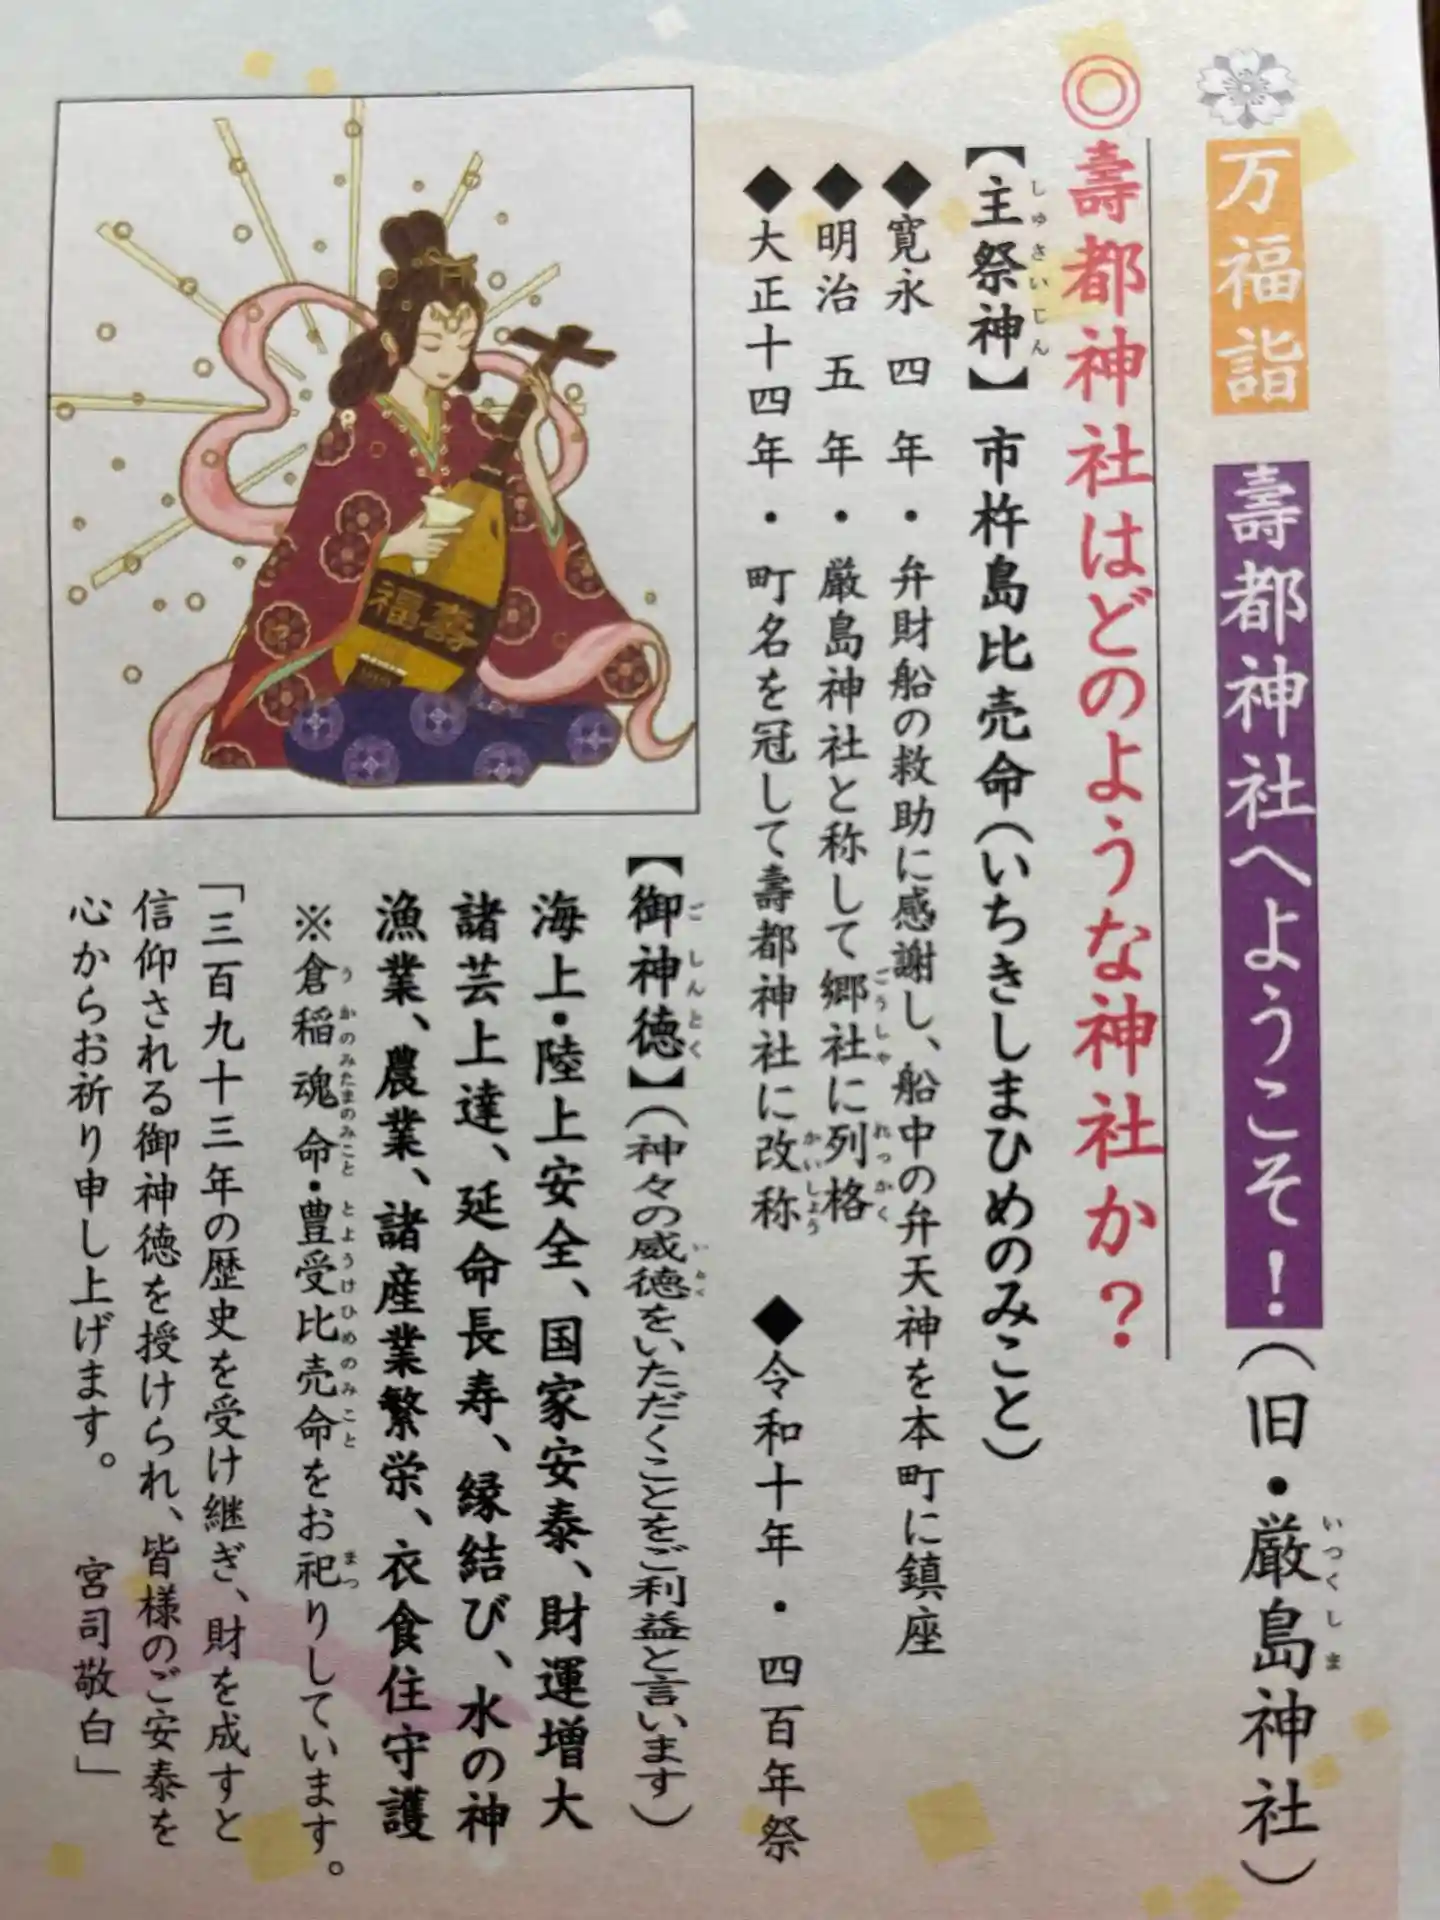 万福詣 壽都神社へようこそ！（旧・厳島神社）
◎壽都神社はどのような神社か？
【主祭神】市杵島比売命（いちきしまひめのみこと）
◆寛永四年・弁財船の救助に感謝し、船中の弁天神を本町に鎮座
◆明治五年・厳島神社と称して郷社に列格
◆大正十四年・町名を冠して壽都神社に改称 ◆令和十年・四百年祭
【御神徳】（神々の威徳をいただくことをご利益と言います）
海上・陸上安全、国家安泰、財運増大
諸芸上達、延命長寿、縁結び、水の神
漁業、農業、諸産業繁栄、衣食住守護
※倉稲魂命・豊受比売命をお祀りしています。
「三百九十三年の歴史を受け継ぎ、財を成すと
信仰される御神徳を授けられ、皆様のご安泰を
心からお祈り申し上げます。 宮司敬白」
福壽